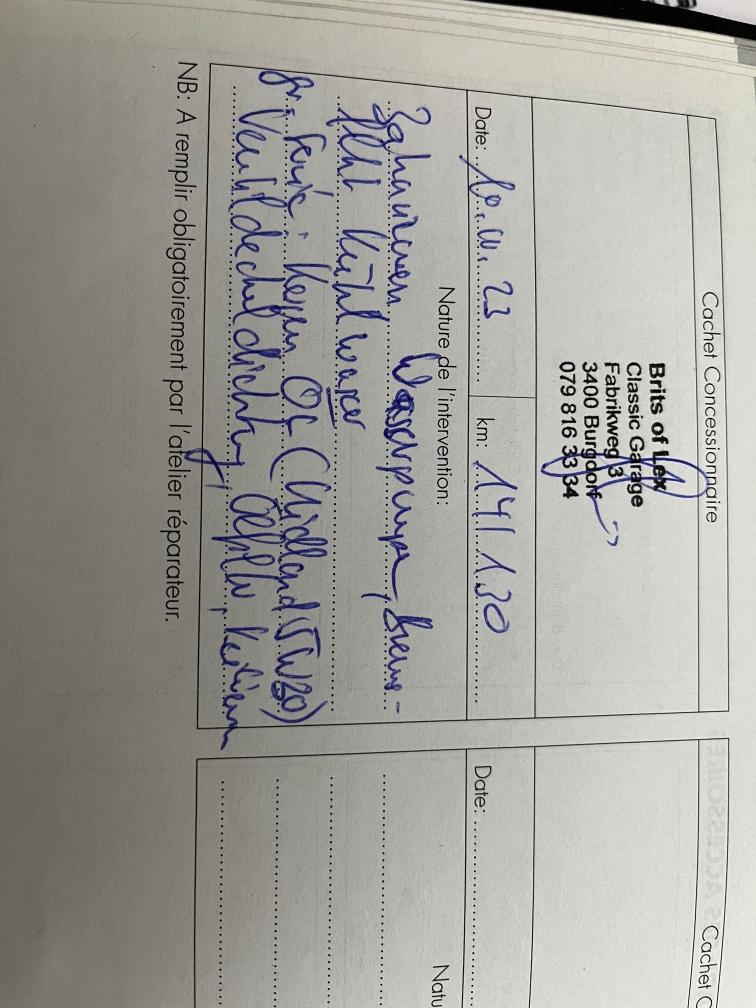 Cachet Concessionnaire
Brits of Lex
Classic Garage
Fabrikweg 3
3400 Burgdorf
079 816 33 34
Date: 23
km: 141130
Nature de l'intervention:
Zahnriemen, Wasserpumpe, Brems-
Kühlwasser
Gr. Servic: Kerzen Öl (Midland 5W30)
Ventildeckeldichtung, Ölfilter, Keilriemen
NB: A remplir obligatoirement par l'atelier réparateur.
Cachet C
Date:
Natu
ACCESSOIRE